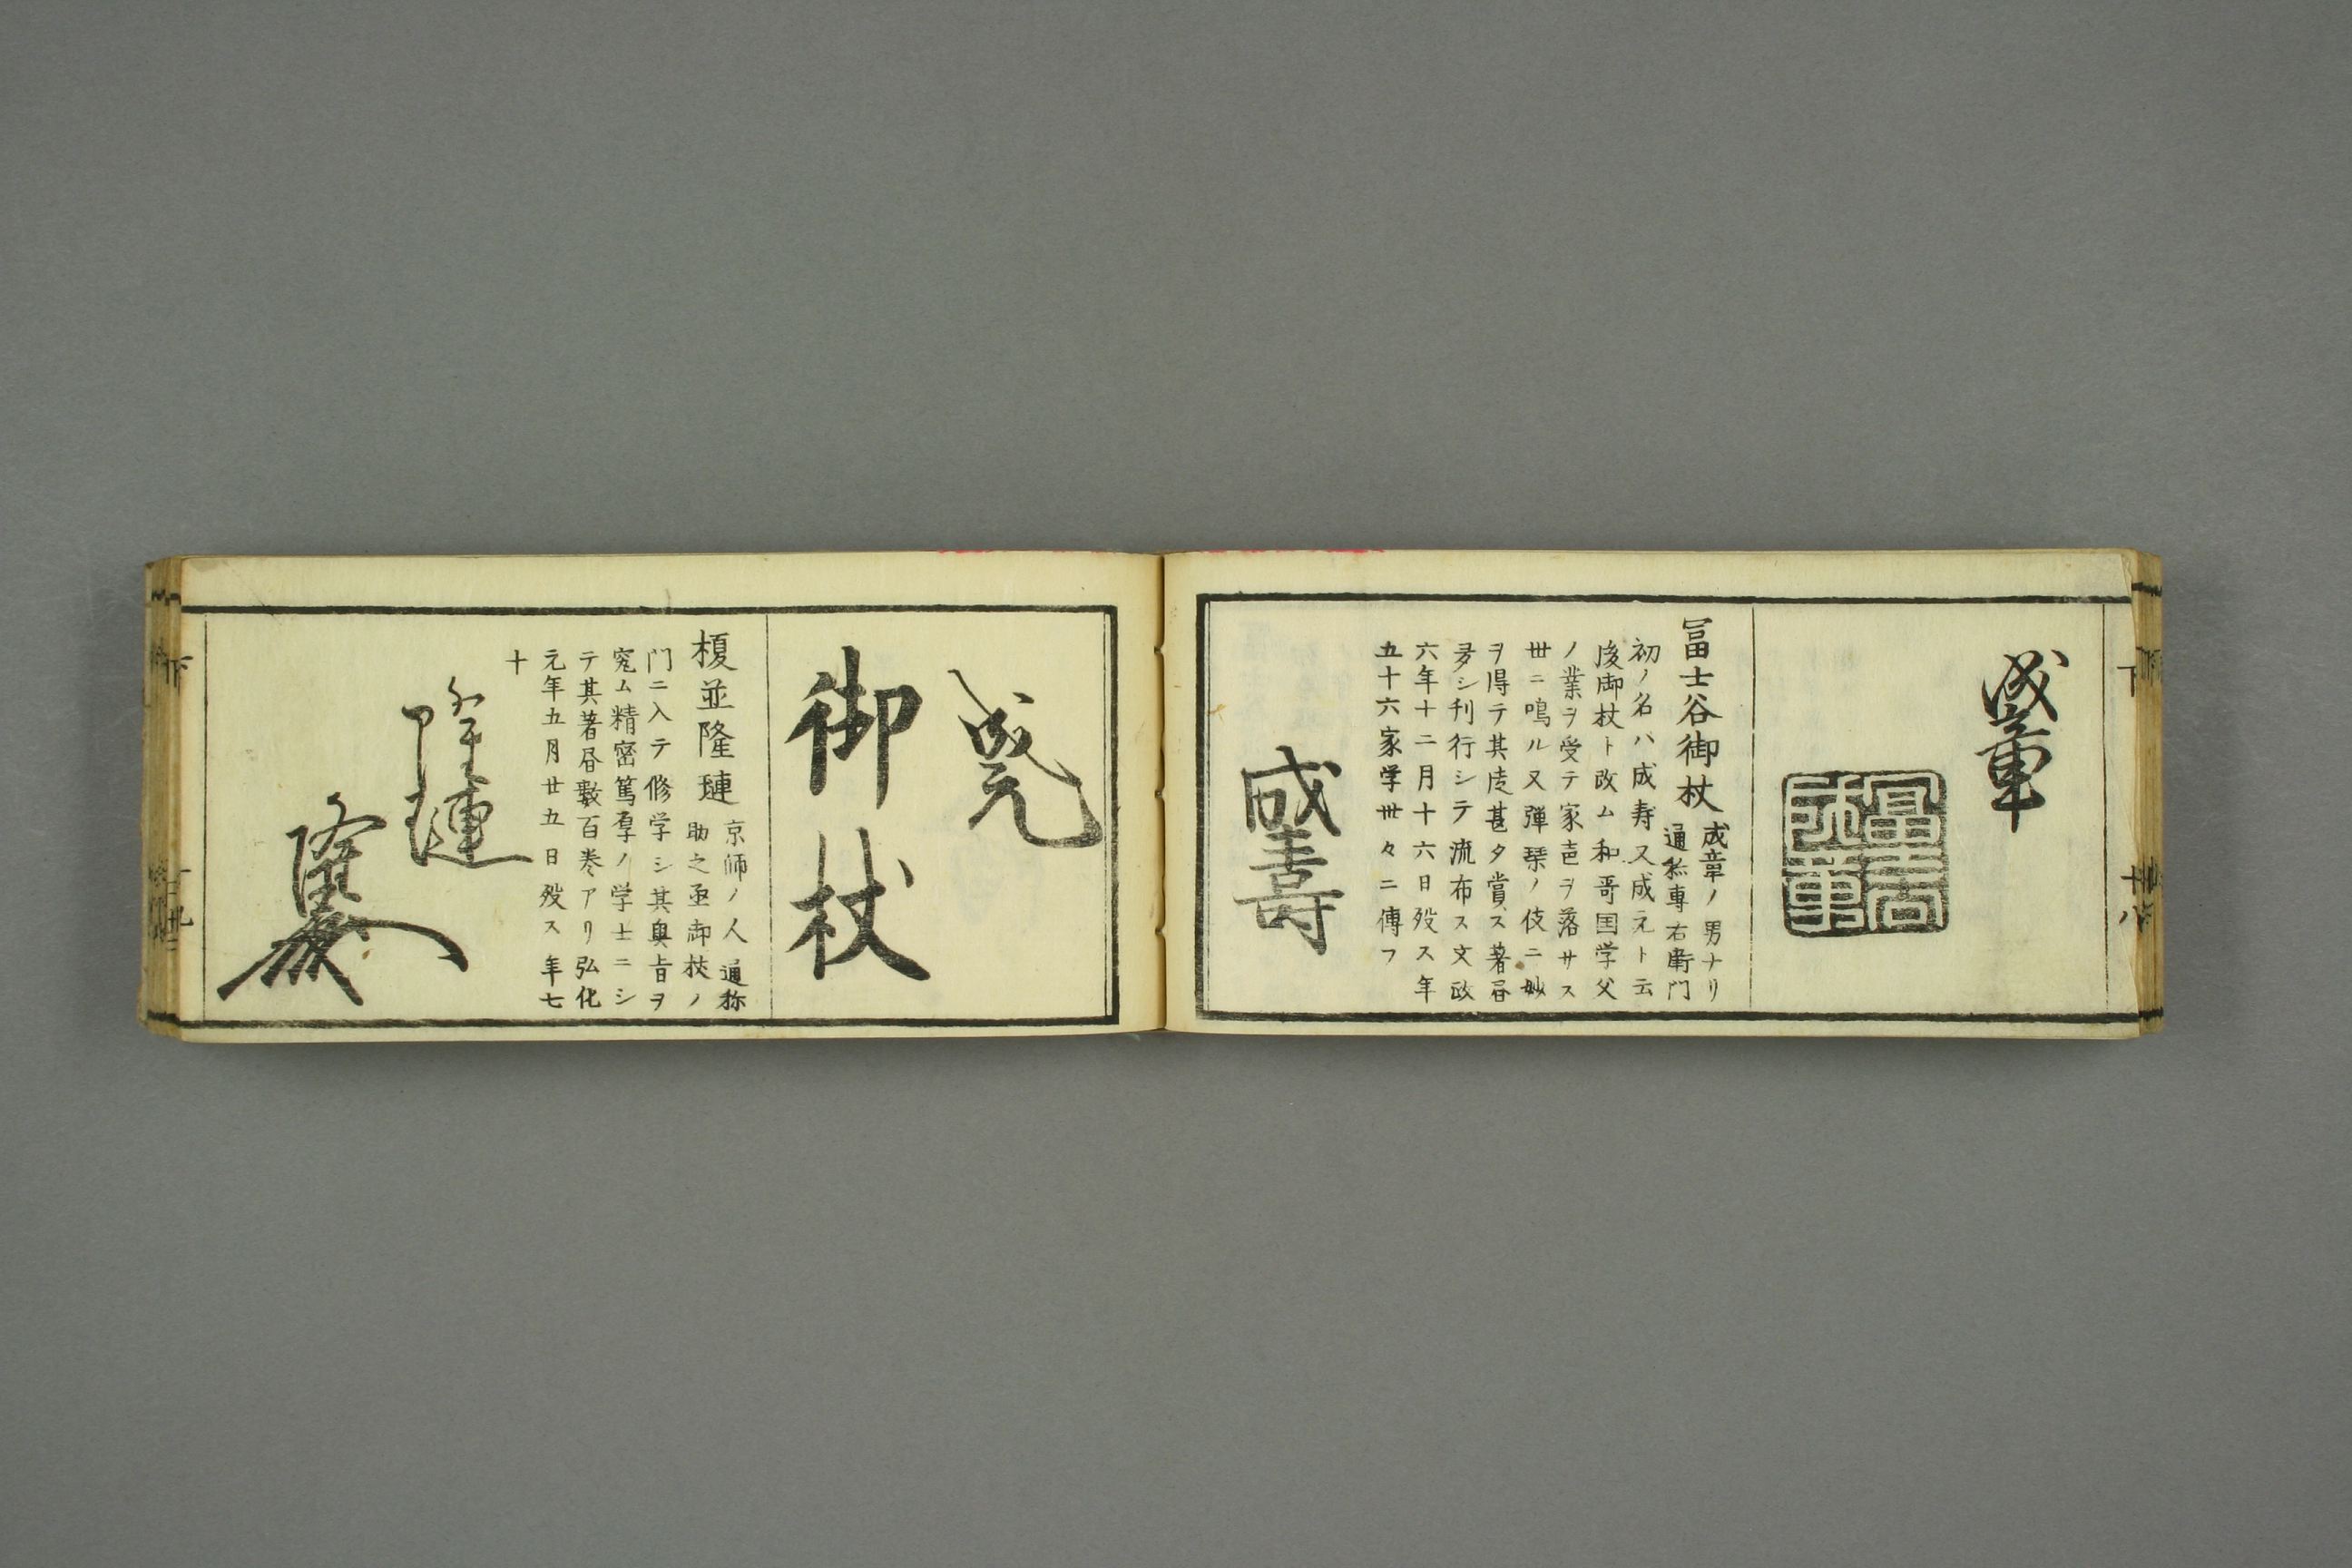 成章
冨士谷御杖
成章ノ男ナリ
通称専右衛門
初ノ名ハ成寿又成元ト云
後御杖ト改ム和哥国学父
ノ業ヲ受テ家声ヲ落サス
世ニ鳴ル又弾琴ノ伎ニ妙
ヲ得テ其度甚タ賞ス著書
多シ刊行シテ流布ス文政
六年十二月十六日殁ス年
五十六家学世々ニ傳フ
成壽
成元
御杖
榎並隆璉
京師ノ人通称
助之丞御杖ノ
门ニ入テ修学シ其奥旨ヲ
究ム精密篤厚ノ学士ニシ
テ其著書数百巻アリ弘化
元年五月廿五日殁ス年七
十
隆璉
下
十八
下
十九